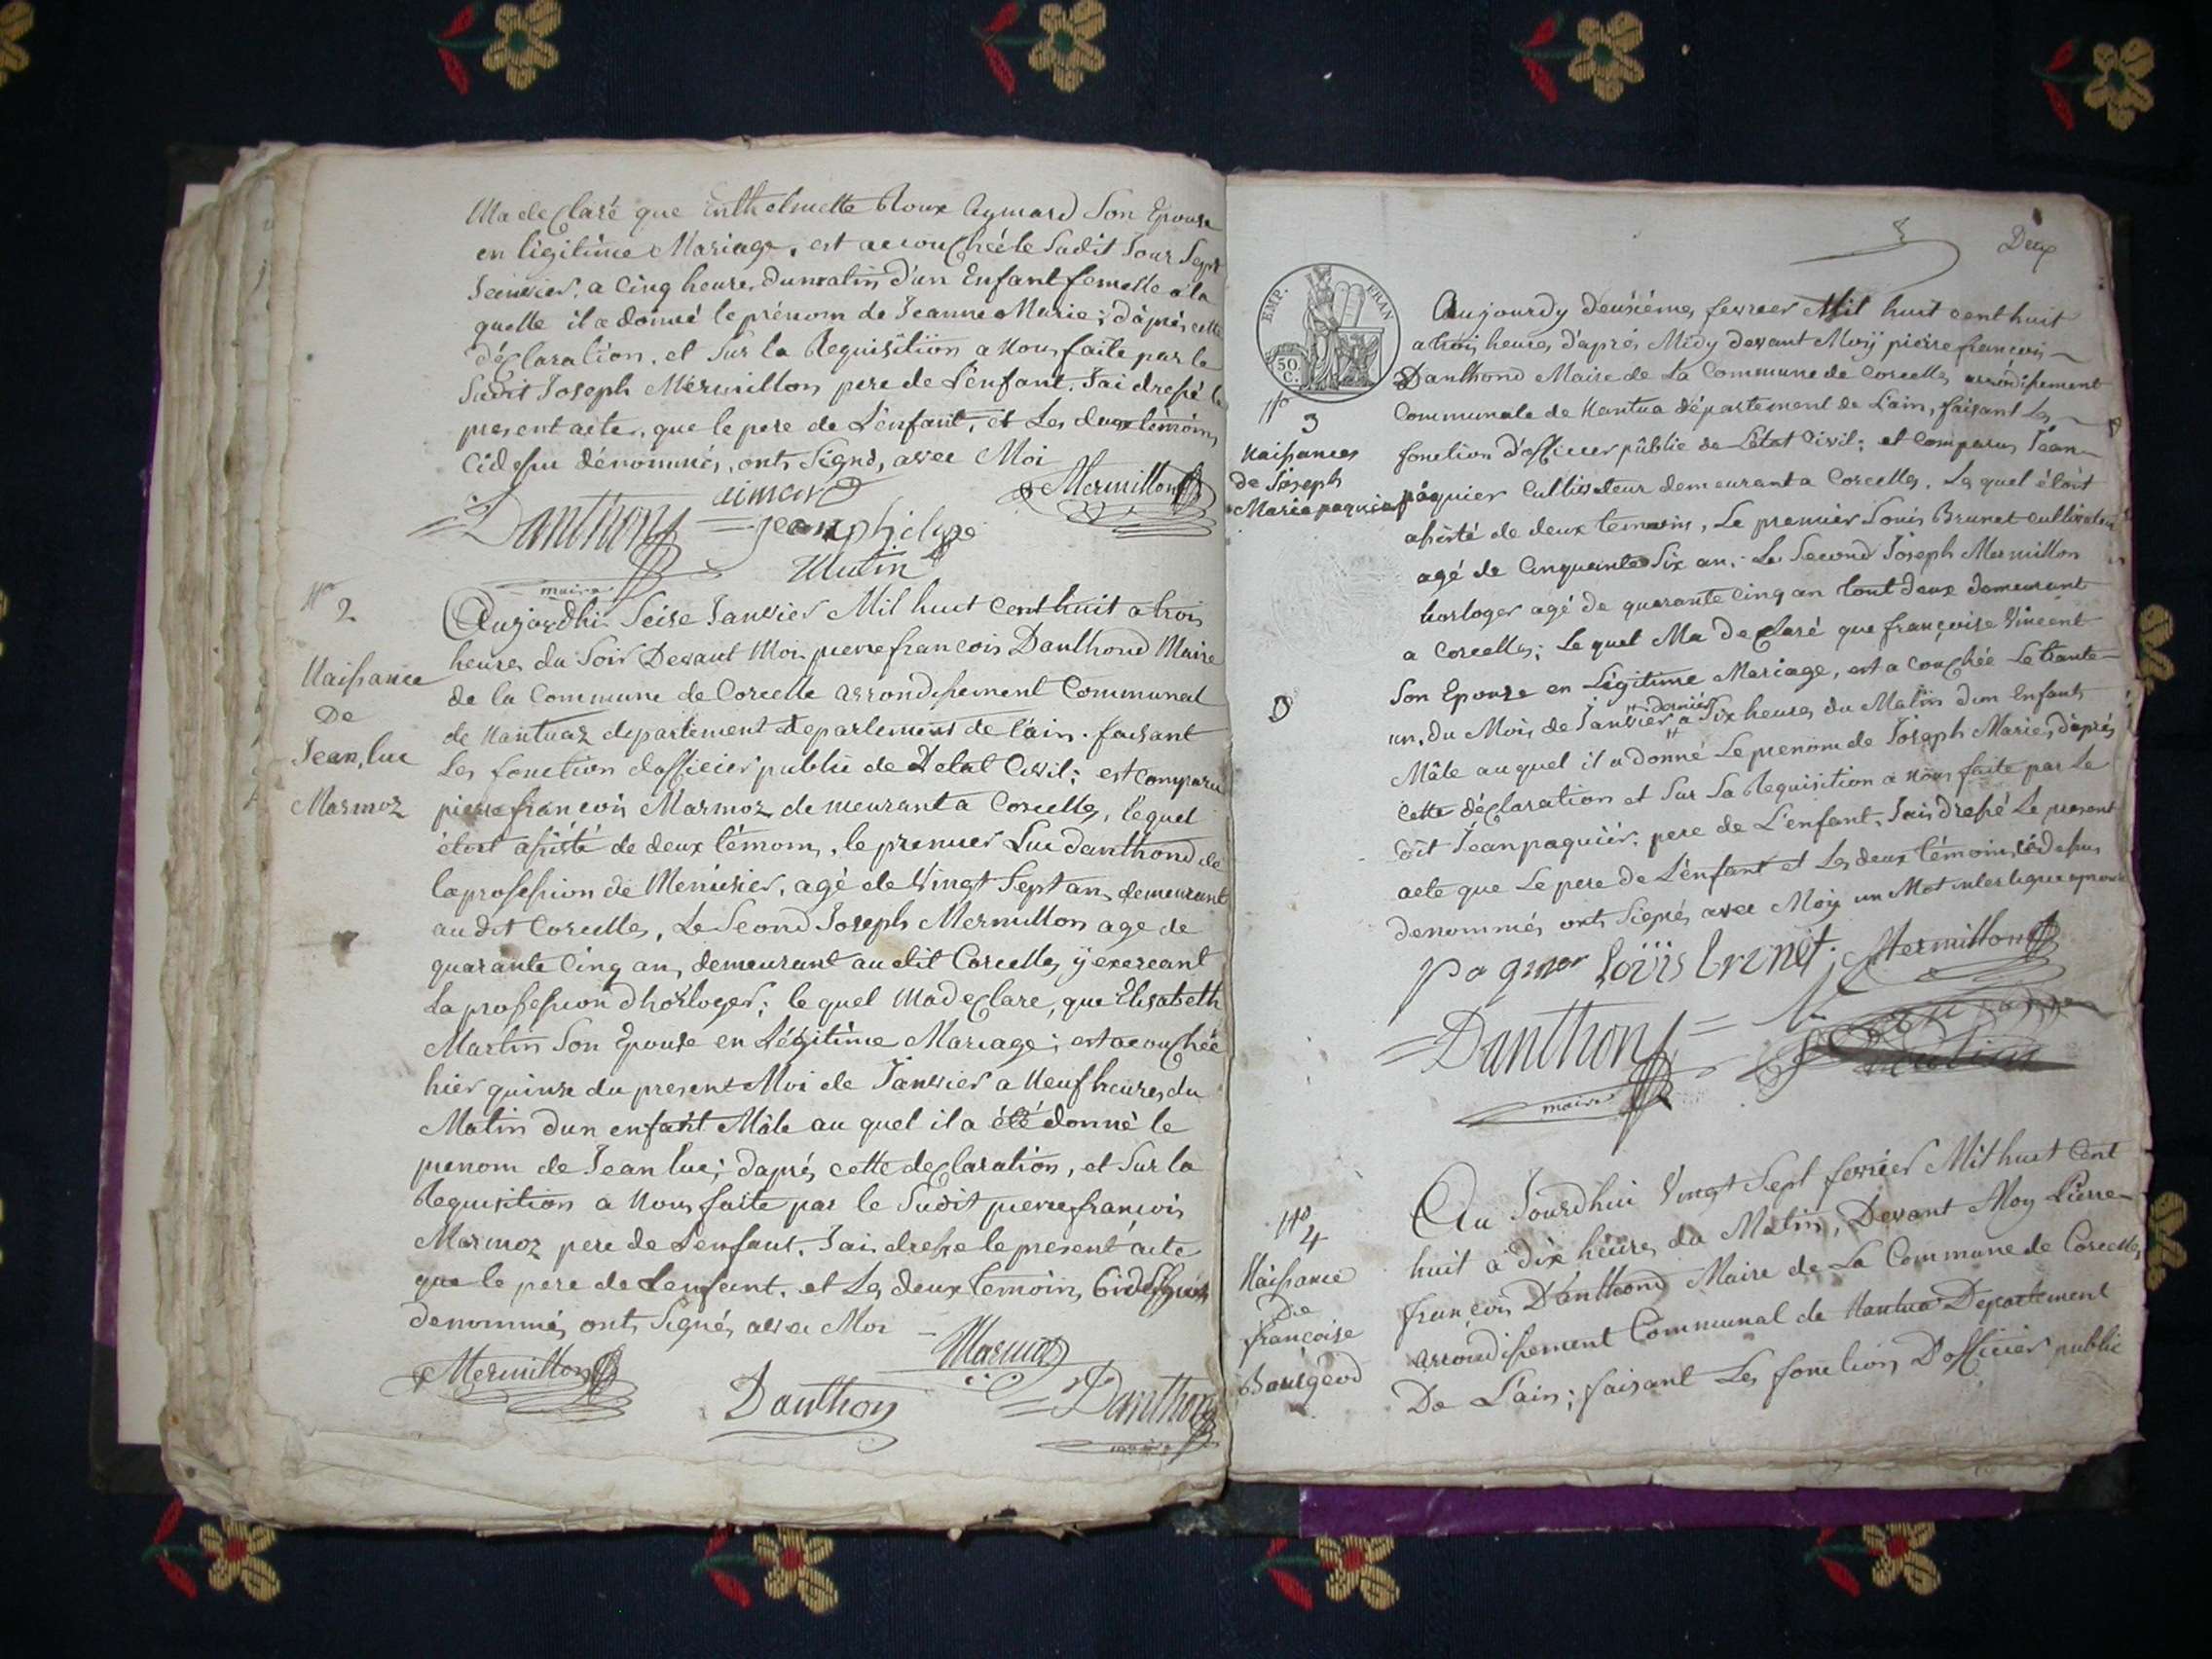 Ma declaré que Enthelmette Roux Aymard Son Epouse
en légitime Mariage, est accouchée le Sudit Jour Sept
Janvier, a Cinq heures dumatin d'un Enfant femelle a la
quelle il a donné le prénom de Jeanne Marie; d'après cette
déclaration, et Sur la Requisition a Nous faite par le
Sudit Joseph Mermillon pere de L'enfant. J'ai dressé le
present acte, que le pere de L'enfant, et Les deux témoins
Cidessu dénommés, onts Signés, avec Moi
Danthon aimard Mermillon
jean philipe
Mutin
maire
N° 2
Naissance
De
Jean, luc
Marmoz
Aujourdhui Seise Janvier Mil huit Cent huit a trois
heures du Soir Devant Moi pierre francois Danthond Maire
de la Commune de Corcelle arrondissement Communal
de Nantuaz departement departement de l'ain. faisant
Les fonction dofficier public de L'etat Civil; est comparu
pierre francois Marmoz demeurant a Corcelles, lequel
étoit assisté de deux témoins, le premier Luc danthond de
la profession de Menusier, agé de Vingt Sept ans, demeurant
au dit Corcelles, Le Second Joseph Mermillon age de
quarante Cinq ans, demeurant au dit Corcelles y exerceant
La profession d'horloger; le quel Ma declare, que Elisabeth
Martin Son Epouse en Légitime Mariage; est acouchée
hier quinze du present Moi de Janvier a Neuf heures du
Matin dun enfant Mâle au quel il a été donné le
prenom de Jean luc; daprés cette declaration, et Sur la
Requisition a Nous faite par le Sudit pierre francois
Marmoz pere de L'enfant. J'ai dresse le present acte
que le pere de Lenfant, et Les deux temoins Cidessus
denommés onts Signés avec Moi
Mermillon Marmoz
Danthon Danthon
maire
Deux
EMP. FRAN
50 C.
N° 3
Naissances
de Joseph
Marie paquier
Aujourdy deusiéme, fevrier Mil huit cent huit
a trois heures d'aprés Midy devant Moy piérre françois
Danthond Maire de La Commune de Corcelles arrondissement
Communale de Nantua département de L'ain, faisant Les
fonction d'officier public de L'état Civil; et Comparus Jean
páquier Cultivateur demeurant a Corcelles. Le quel étoit
assisté de deux temoins, Le premier Louis Brunet cultivateur
agé de Cinquante Six an; Le Second Joseph Mermillon
horloger agé de quarante Cinq an tout deux demeurant
a Corcelles; Le quel Ma declaré que françoise Vincent
Son Epouse en Légitime Mariage, est a couchée Le trante
un, du Mois de Janvier dernier a Six heures du Matin dun Enfants
Mâle au quel il a donné Le prenom de Joseph Marie, d'aprés
Cette déclaration et Sur Sa Requisition a Nous faite par Le
dit Jean paquiér, pere de L'enfant, J'ais dressé Le present
acte que Le pere de L'énfant et Les deux témoins cidessus
denommés onts Signés avec Moy un Mot interligne aprouvé
Loüis brunet Mermillon
Danthon
maire
N° 4
Naissance
De
françoise
Bourgeod
Au Jourdhui Vingt Sept fevriér Mil huit Cent
huit a dix heures du Matin, Devant Moy Pierre
françois D'anthond Maire de La Commune de Corcelles
arrondissement Communal de Nantua Departement
De L'ain; faisant Les fonction D'officier public